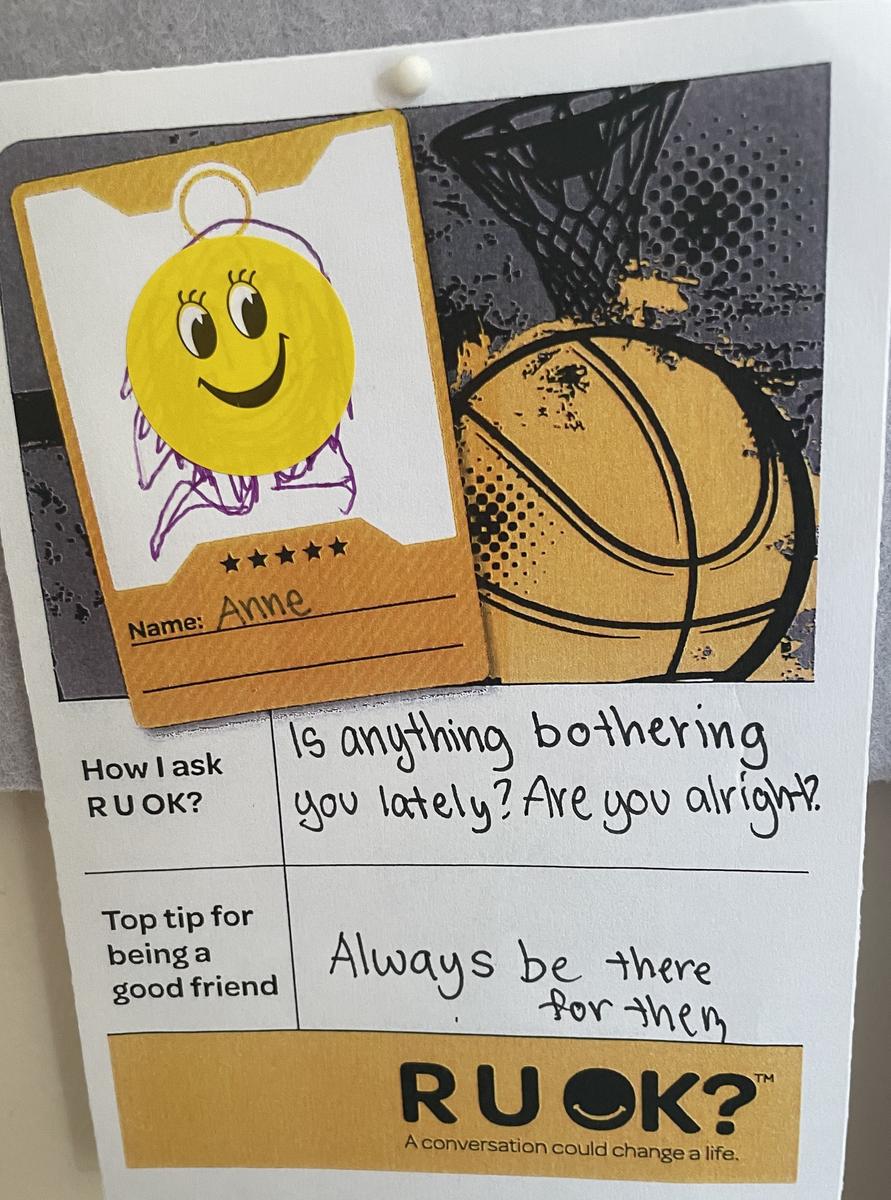 Name: Anne
How I ask
R U OK?
Is anything bothering
you lately? Are you alright?
Top tip for
being a
good friend
Always be there
for them
R U OK?™
A conversation could change a life.